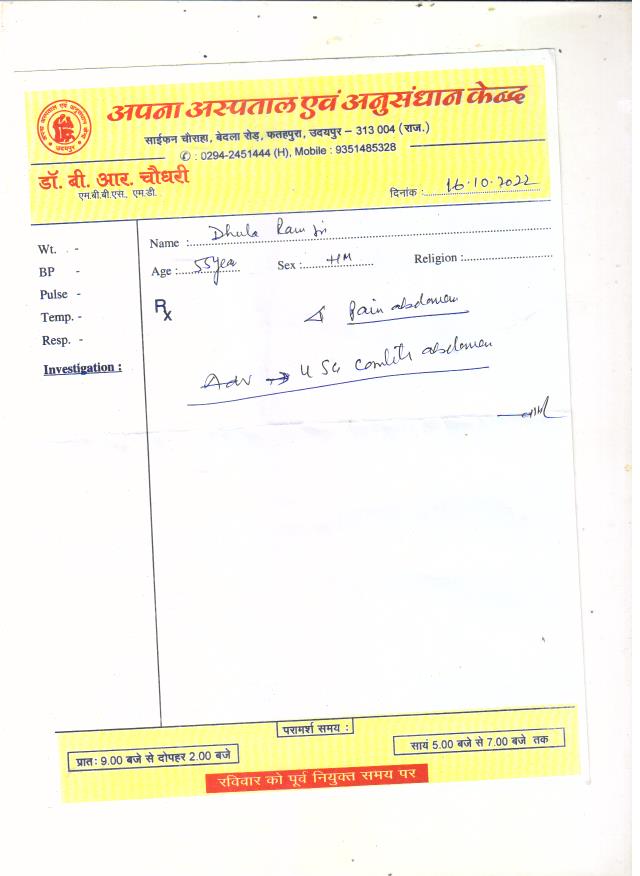 अपना अस्पताल एवं अनुसंधान केन्द्र
साईफन चौराहा, बेदला रोड़, फतहपुरा, उदयपुर – 313 004 (राज.)
✆ : 0294-2451444 (H), Mobile : 9351485328
डॉ. बी. आर. चौधरी
एम.बी.बी.एस., एम.डी.
दिनांक : 16.10.2022
Name : Dhula Ram Ji
Age : 55 year Sex : HM Religion :
Wt. -
BP -
Pulse -
Temp. -
Resp. -
Investigation :
Rx
Pain abdomen
Adv → USG abdomen
परामर्श समय :
प्रातः 9.00 बजे से दोपहर 2.00 बजे
सायं 5.00 बजे से 7.00 बजे तक
रविवार को पूर्व नियुक्त समय पर